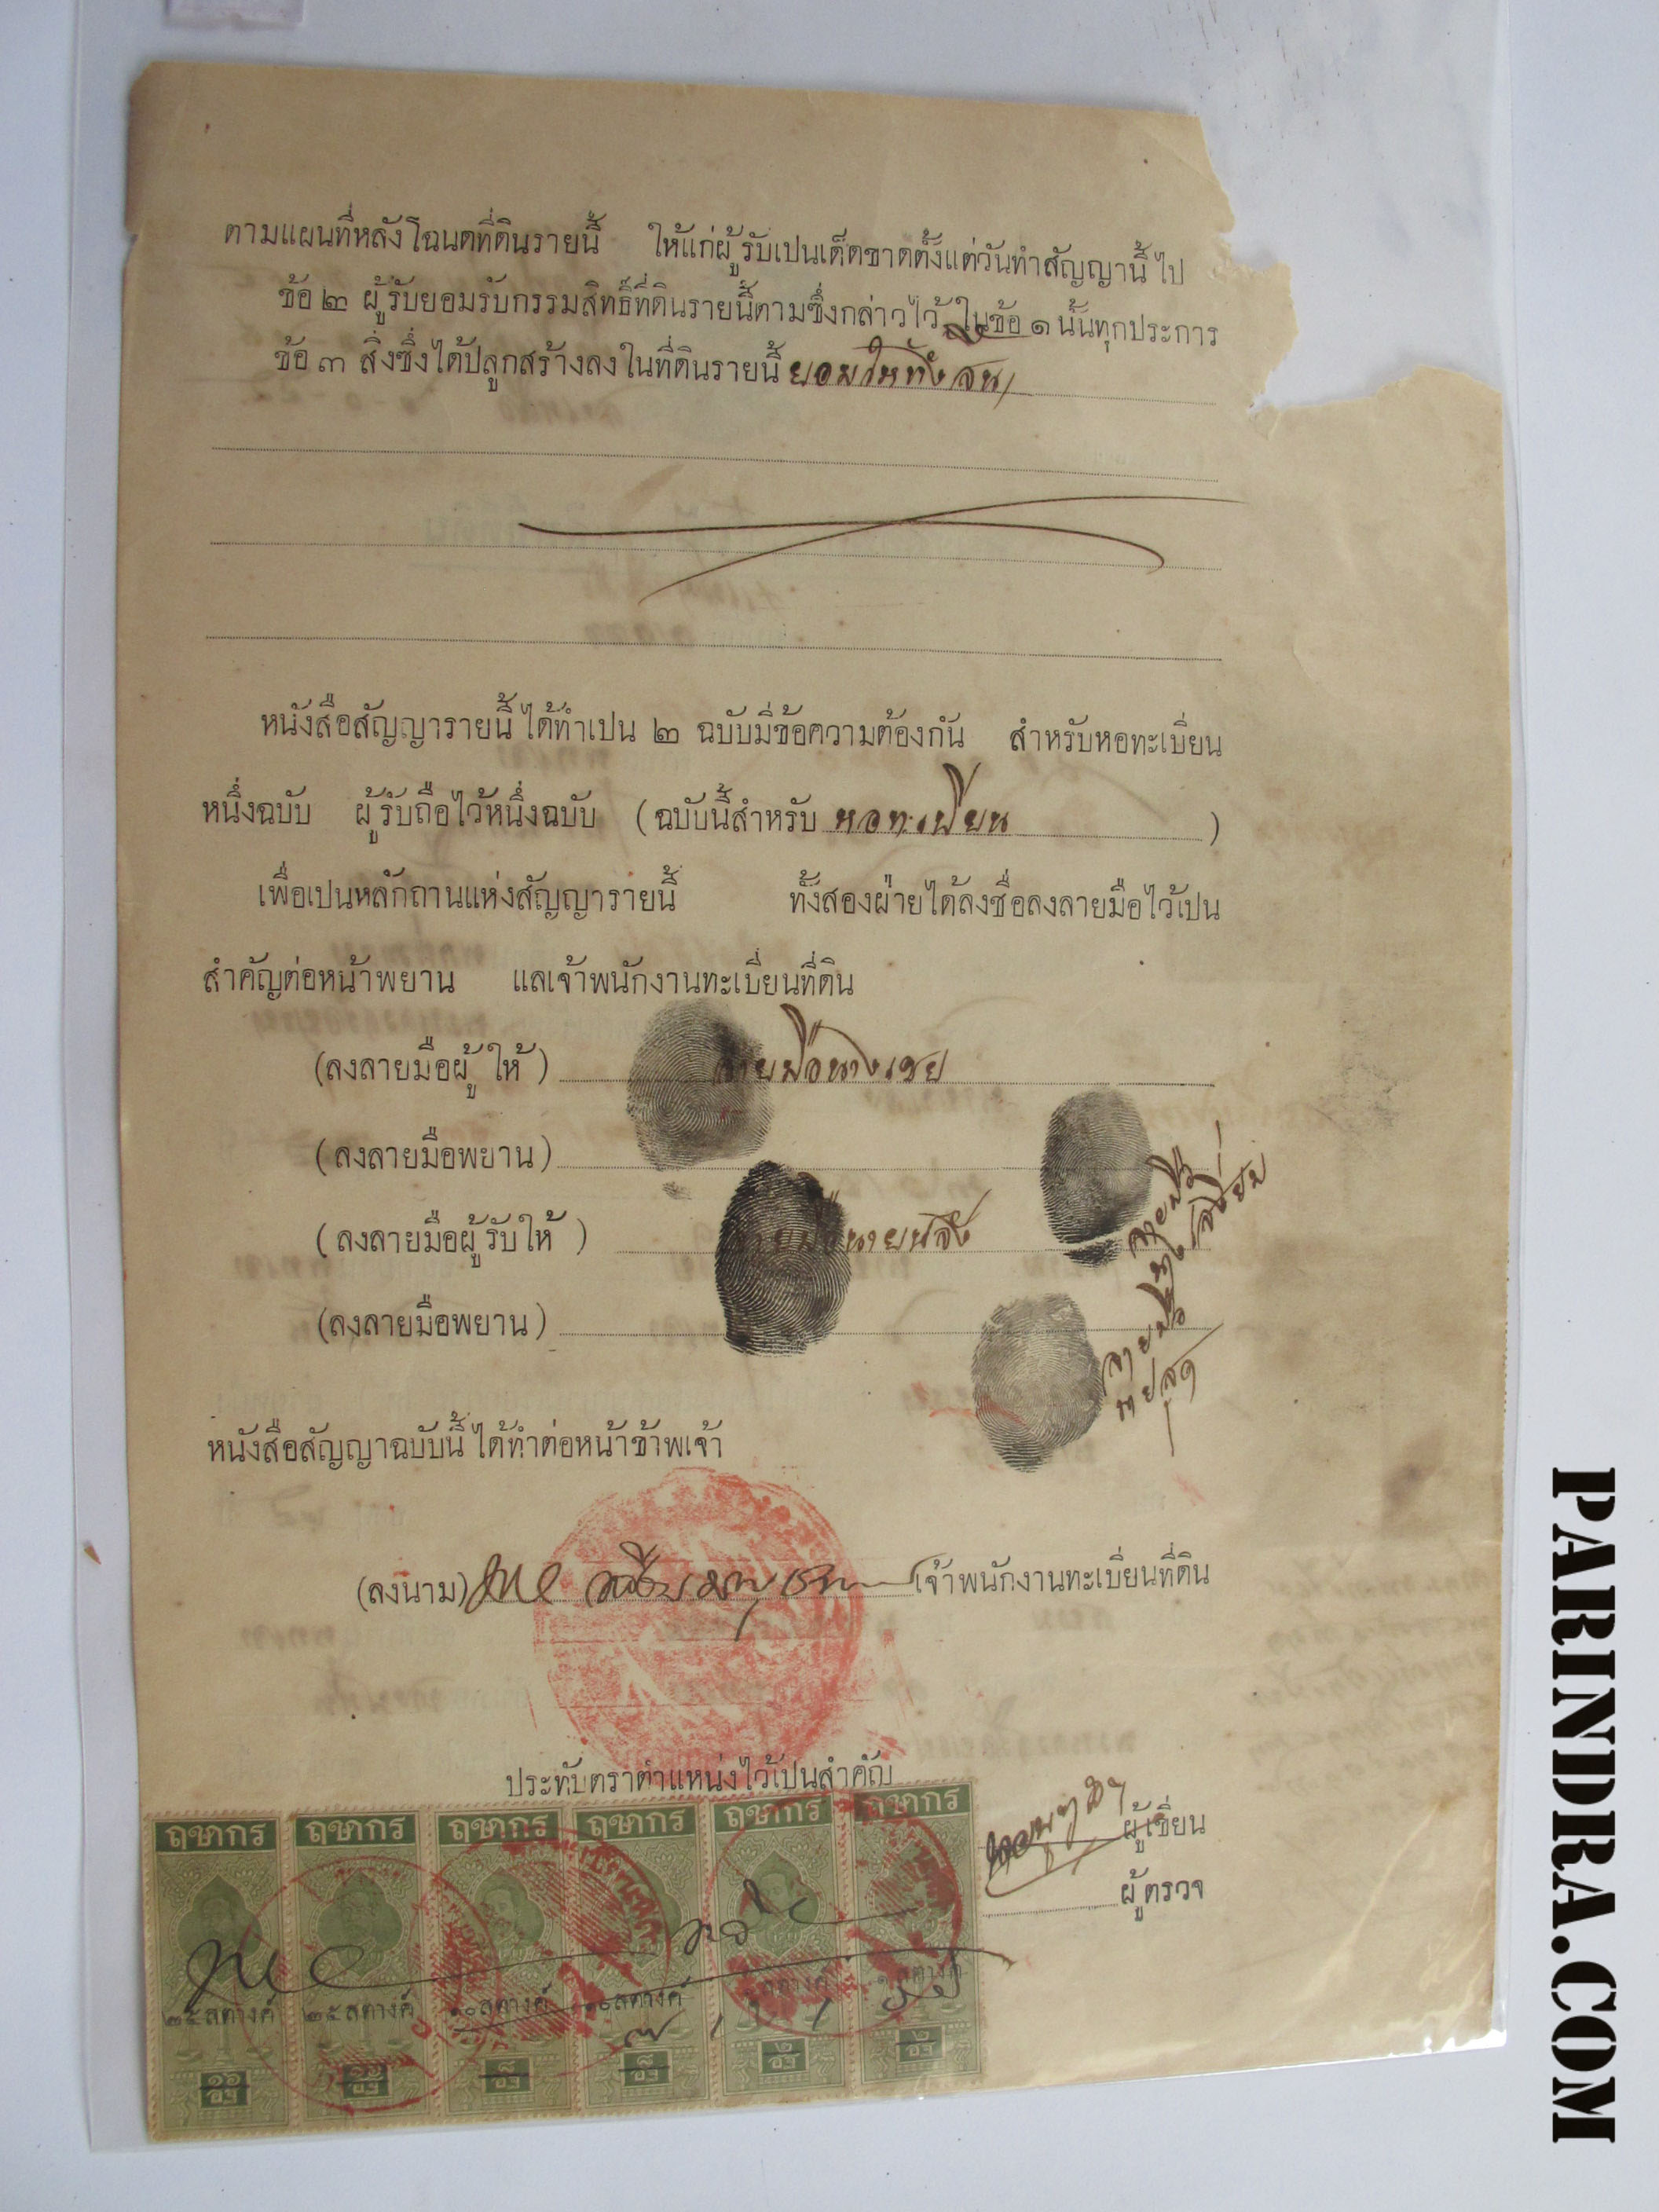 ตามแผนที่หลังโฉนดที่ดินรายนี้ ให้แก่ผู้รับเปนเด็ดขาดตั้งแต่วันทำสัญญานี้ไป
ข้อ ๒ ผู้รับยอมรับกรรมสิทธิ์ที่ดินรายนี้ตามซึ่งกล่าวไว้ในข้อ ๑ นั้นทุกประการ
ข้อ ๓ สิ่งซึ่งได้ปลูกสร้างลงในที่ดินรายนี้ ยอมให้ทั้งสิ้น
หนังสือสัญญารายนี้ได้ทำเปน ๒ ฉบับมีข้อความต้องกัน สำหรับหอทะเบียน
หนึ่งฉบับ ผู้รับถือไว้หนึ่งฉบับ (ฉบับนี้สำหรับ หอทะเบียน )
เพื่อเปนหลักถานแห่งสัญญารายนี้ ทั้งสองฝ่ายได้ลงชื่อลงลายมือไว้เปน
สำคัญต่อหน้าพยาน แลเจ้าพนักงานทะเบียนที่ดิน
(ลงลายมือผู้ให้) ลายมือนางเชย
(ลงลายมือพยาน)
(ลงลายมือผู้รับให้) ลายมือนาย
(ลงลายมือพยาน)
ลายมือ
ลายมือ
หนังสือสัญญาฉบับนี้ได้ทำต่อหน้าข้าพเจ้า
(ลงนาม) เจ้าพนักงานทะเบียนที่ดิน
ประทับตราตำแหน่งไว้เปนสำคัญ
ผู้เขียน
ผู้ตรวจ
ฤชากร ฤชากร ฤชากร ฤชากร ฤชากร ฤชากร
๒๕ สตางค์ ๒๕ สตางค์ ๑๐ สตางค์ ๑๐ สตางค์ สตางค์ สตางค์
PARINDRA.COM